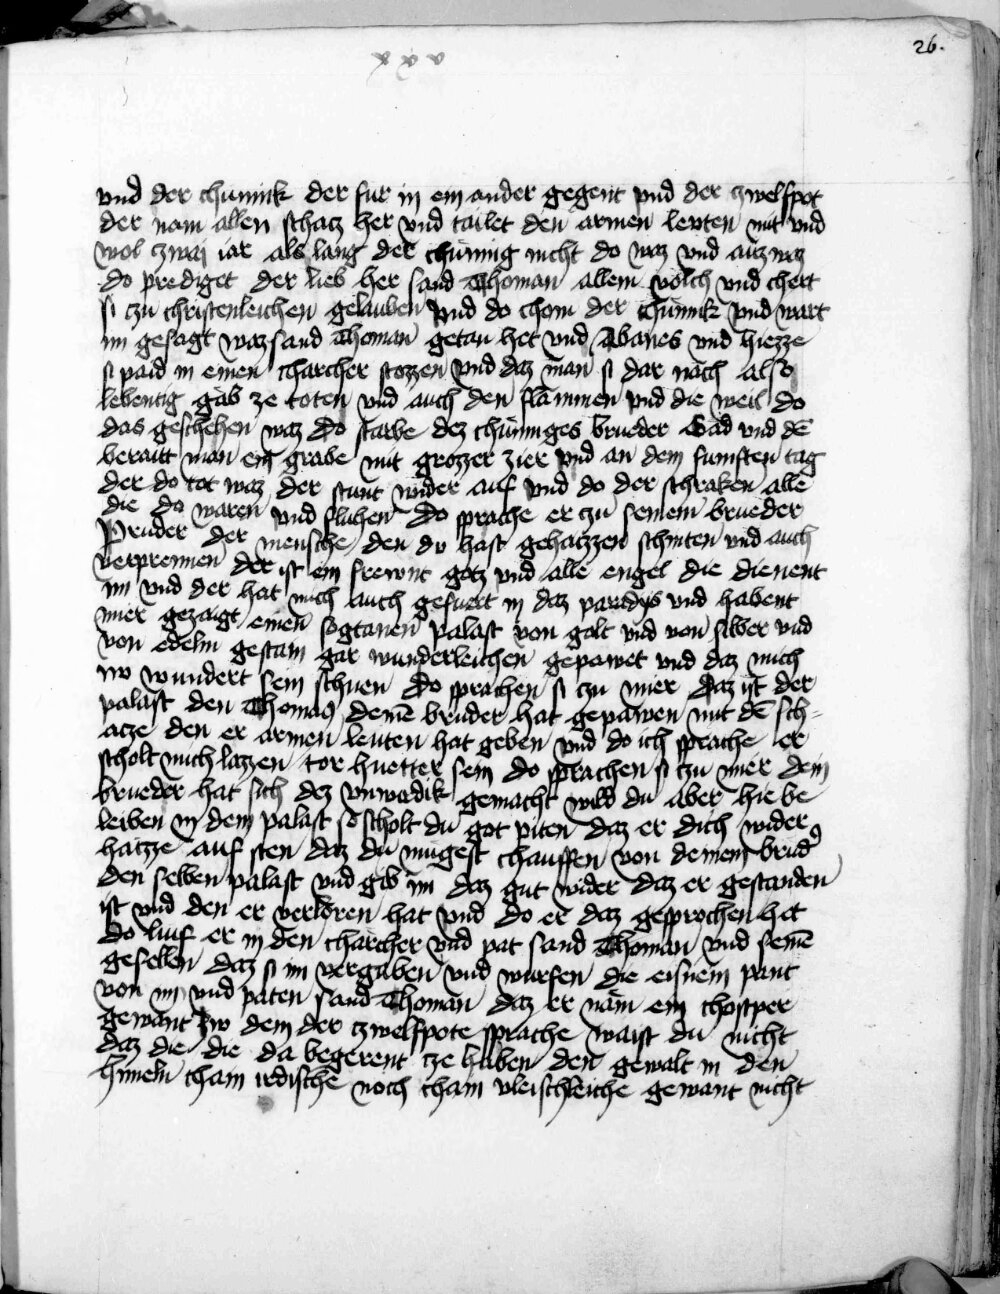 26.
xxv
vnd der chunnk der fur in em ander gegent vnd der zwelfpot
der nam allen schacz her vnd tailet den armen levten mit vnd
wol zwai iar als lang der chunnig nicht do waz vnd auz waz
do prediget der lieb her sand Thoman allem volch vnd chert
si zu christenleichen gelauben vnd do chom der chunnk vnd wart
im gesagt waz sand Thoman getan het vnd Abanes vnd hiezze
si paid in einen charcher stozzen vnd daz man si dar nach also
lebentig gab ze toten vnd auch den flammen vnd die weil do
das geschehen waz do starbe dez chunniges brueder Gad vnd dē
beraitt man ein grabe mit grozzer zier vnd an dem funften tag
der do tot waz der stunt wider auf vnd do der schraken alle
die do waren vnd fluhen do sprache er zu seinem brueder
Prueder der mensche den du hast gehaizzen schinten vnd auch
verprennen der ist ein frewnt gotz vnd alle engel die dienent
im vnd der hat mich auch gefuert in daz paradys vnd habent
mier gezaigt einen sogtanen palast von golt vnd von silber vnd
von edelm gestain gar wunderleichen gepawet vnd daz mich
nv wundert sein schuen do sprachen si zu mier daz ist der
palast den Thomas deinē bruder hat gepawen mit dē sch=
acze den er armen leuten hat geben vnd do ich sprache er
scholt mich lazzen tor huetter sein do sprachen si zu mier dein
brueder hat sich dez vnwirdik gemacht wild du aber hie be
leiben in dem palast so scholt du got piten daz er dich wider
haizze auf sten daz du mugest chauffen von deinem brud'
den selben palast vnd gib im daz gut wider daz er gestanden
ist vnd den er verloren hat vnd do er daz gesprochen het
do luif er in den charcher vnd pat sand Thoman vnd seinē
gesellen daz si im vergaben vnd wurfen die eisnem pant
von im vnd paten sand Thoman daz er nam ein chostper
gewant zw dem der zwelfpote sprache waist du nicht
daz die die da begerent ze haben den gewalt in den
himeln cham irdische noch cham vleischleiche gewant nicht